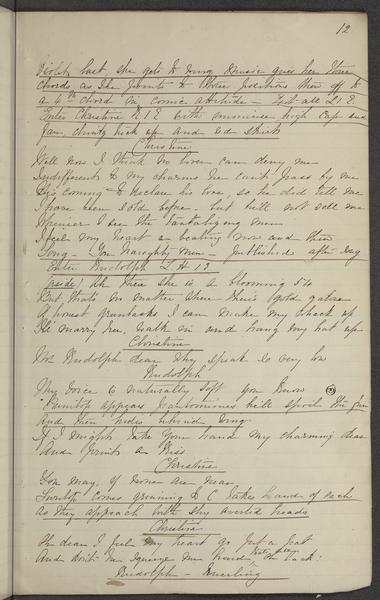 12
last, she gets to wing, Music gives her three
chords as she points to three positions then off to
a 4th chord in comic attitude - Exit all L 1 E
Enter Christine R 1 E with immense high cap and
fan, chintz tuck up and red skirt
Christine
Well now I think no lover can deny me
Indifferent to my charms he can't pass by me
He's coming to declare his love, so he did tell me
I have been sold before, but he'll not sell me
I see the tantalizing man
I feel my heart a beating now and then
Song - You Naughty Men - published after Day
Enter Rudolph L.H 1 3
(aside) Ah there she is a blooming 54
But that's no matter where there's gold galore
A honest greenbacks I can make my whack up
I'll marry her, walk in and hang my hat up
Christine
Mr Rudolph dear why speak so very low
Rudolph
My voice is naturally soft you know
appears pantomimes he'll spoil the fun
And then hides behind wing
If I might take your hand my charming dear
And print a kiss
Christine
You may, if none are near
comes grinning to C takes hand of each
as they approach with shy averted heads
Christine
Oh dear I feel my heart go pit a pat
And don't you squeeze my hand
Rudolph - Kneeling